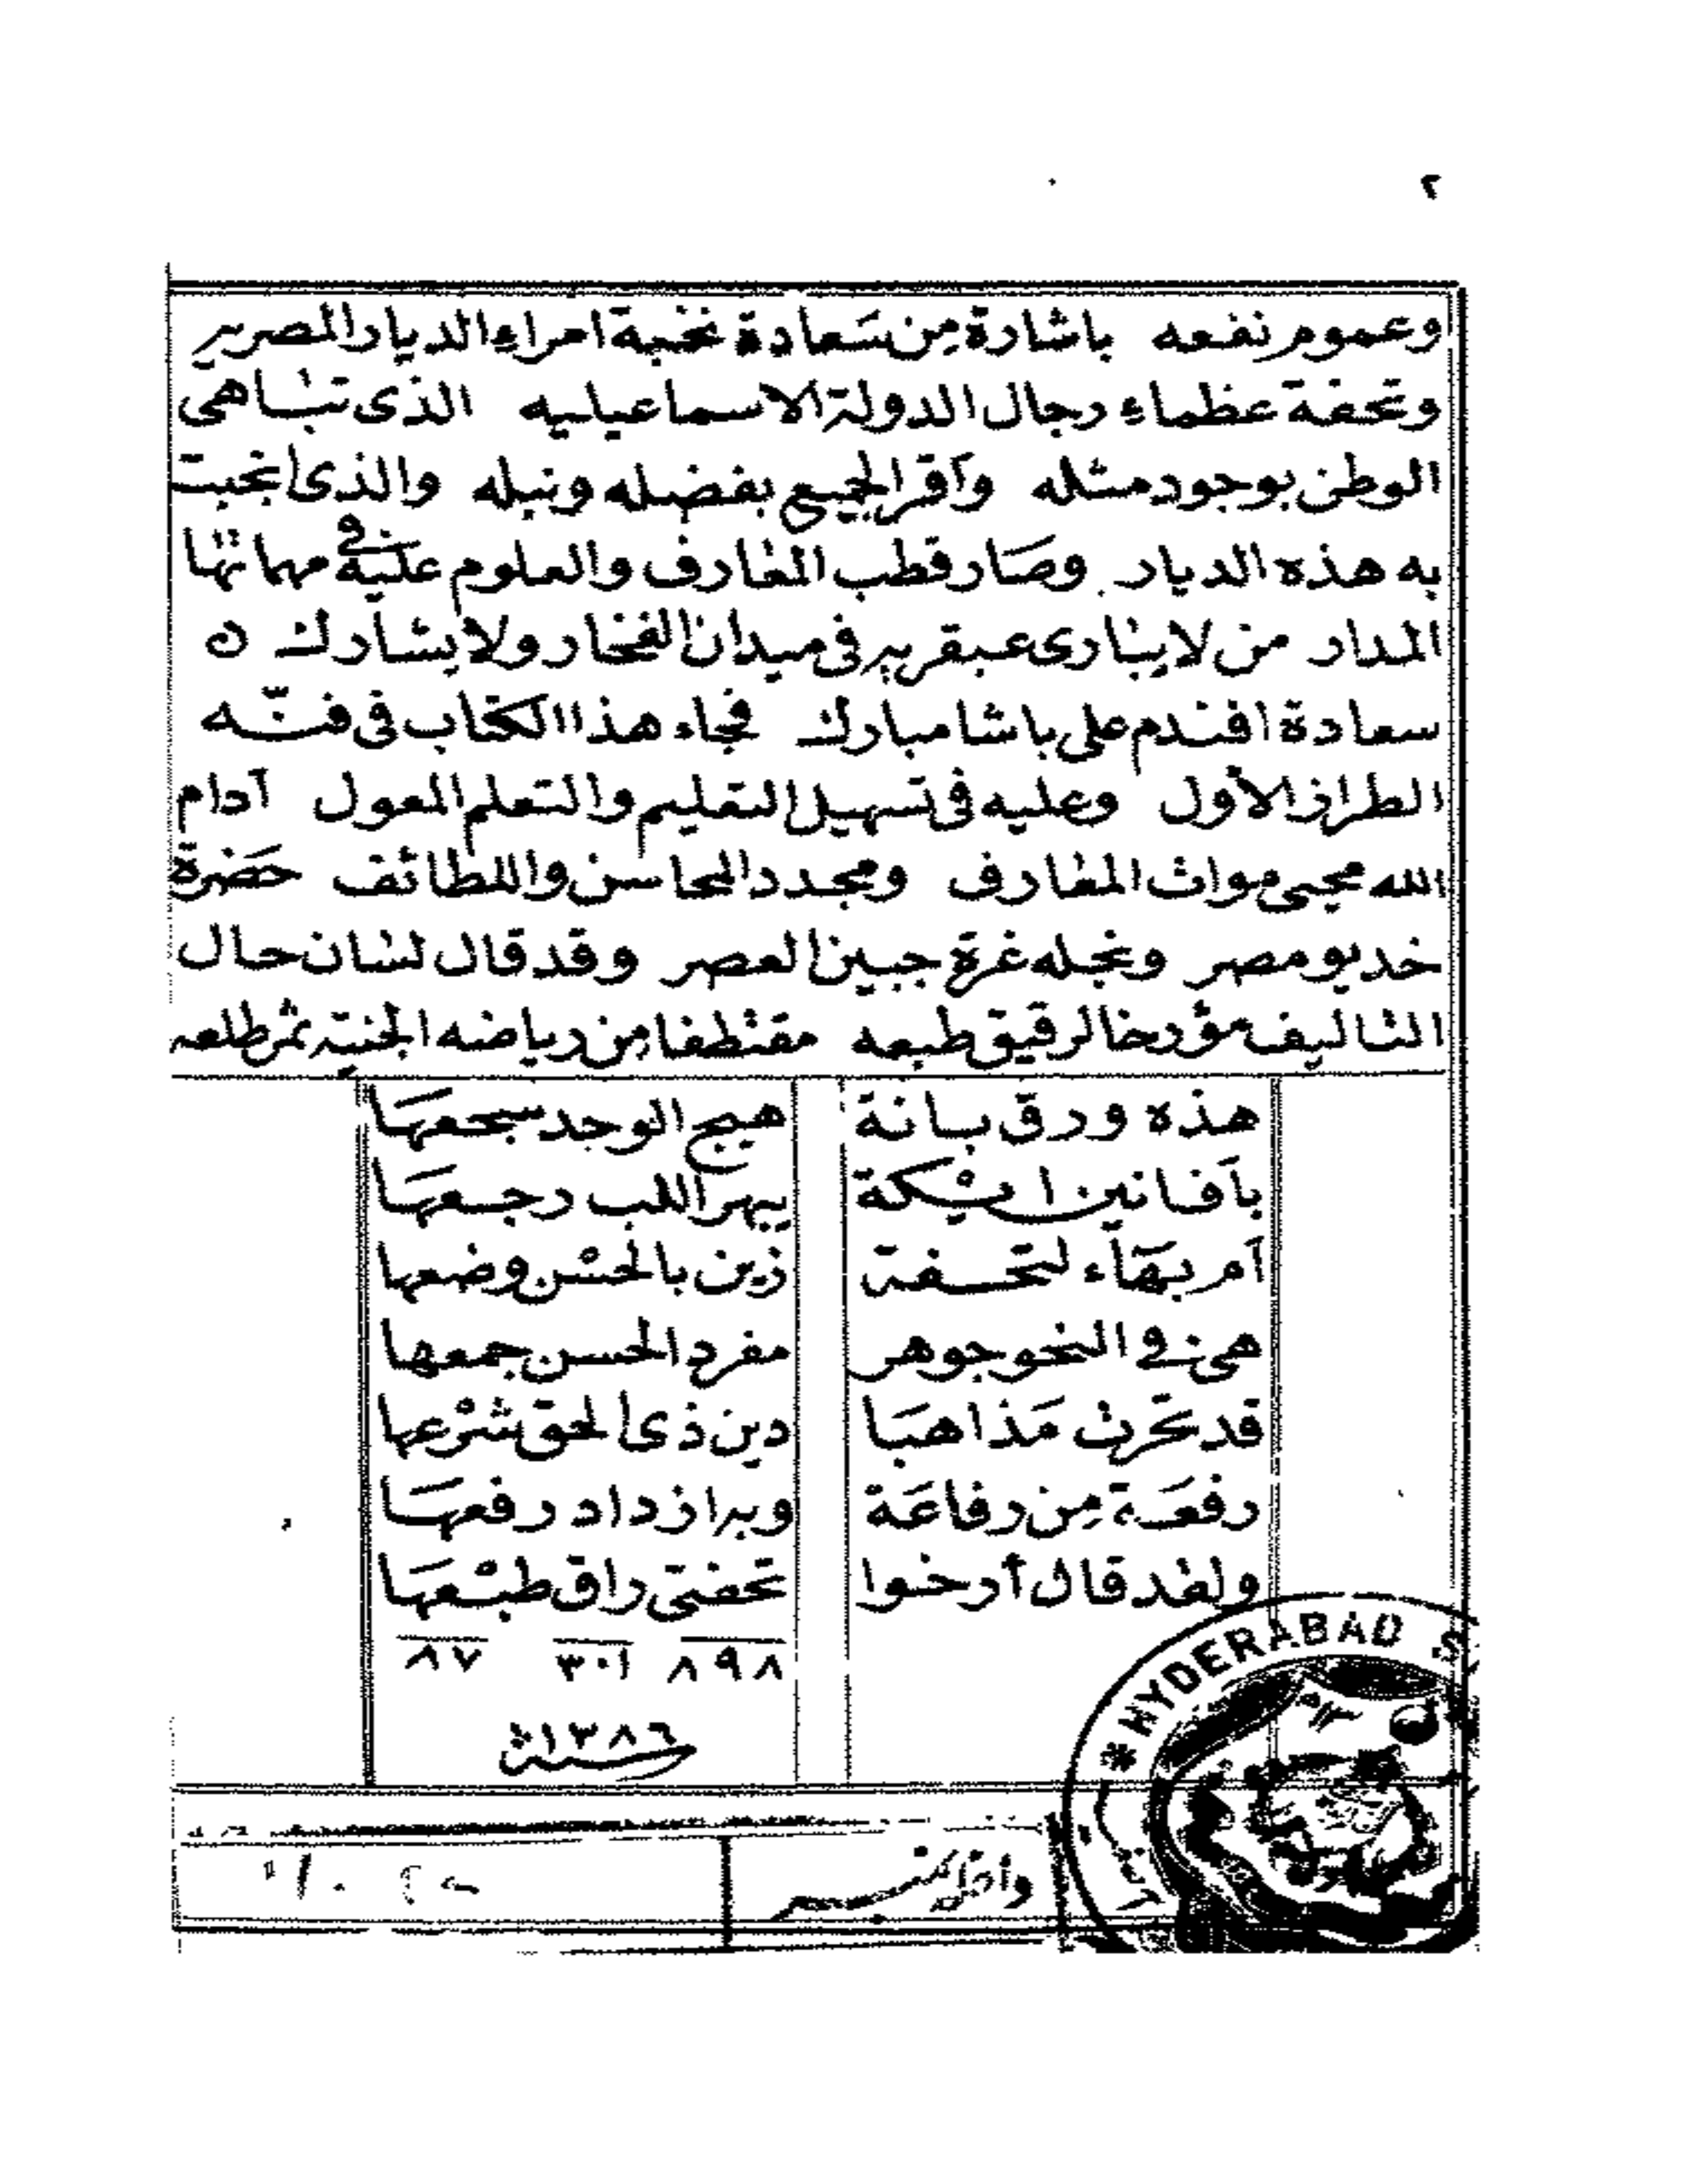 ٢
وعموم نفعه باشارة من سعادة نخبة امراء الديار المصريه
وتحفة عظماء رجال الدولة الاسماعيليه الذى تباهى
الوطن بوجود مثله وأقر الجميع بفضله ونبله والذى انجبت
به هذه الديار وصار قطب المعارف والعلوم عليه فى مهماتها
المدار من لا يبارى عبقريه فى ميدان الفخار ولا يشارك ه
سعادة افندم على باشا مبارك فجاء هذا الكتاب فى فنّه
الطراز الأول وعليه فى تسهيل التعليم والتعلم المعول أدام
الله محيى موات المعارف ومجدد المحاسن واللطائف حضرة
خديو مصر ونجله غرة جبين العصر وقد قال لسان حال
التأليف مؤرخا لرقيق طبعه مقتطفا من رياضه الجنية ثمر طلعه
هذه ورق بانة هيج الوجد سجعها
بأفانين ايكة يبهر اللب رجعها
أم بهاء لتحفة زين بالحسن وضعها
هى فى النحو جوهر مفرد الحسن جمعها
قد تحرت مذاهبا دين ذى الحق شرعها
رفعة من رفاعة وبه ازداد رفعها
ولقد قال أرخوا تحفتى راق طبعها
٨٩٨ ٣٠١ ٨٧
سنة ١٢٨٦
HYDERABAD S